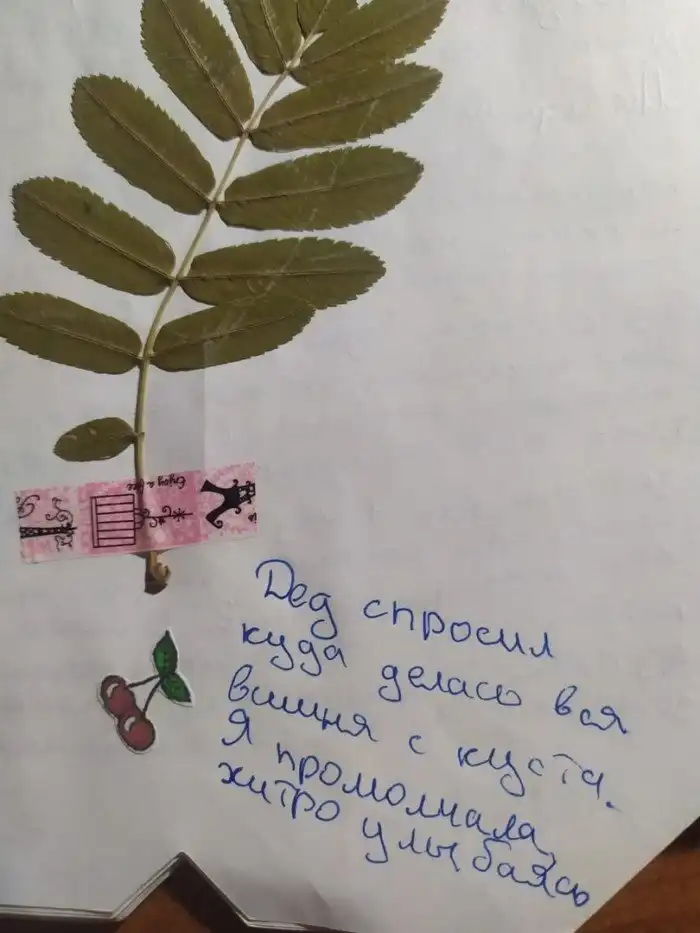 Enjoy a free
Дед спросил
куда делась вся
вишня с куста.
Я промолчала,
хитро улыбаясь